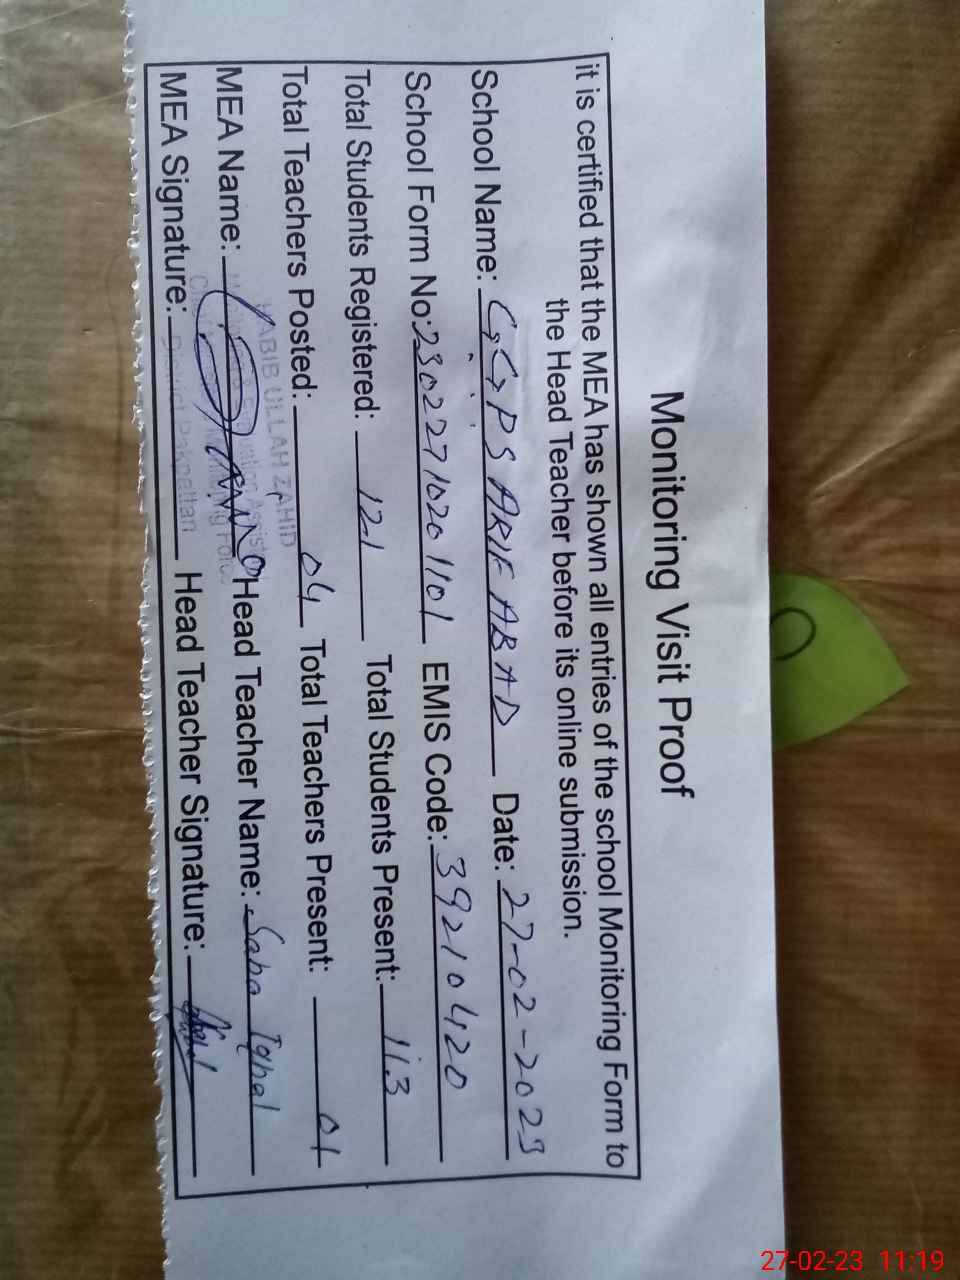 Monitoring Visit Proof
it is certified that the MEA has shown all entries of the school Monitoring Form to
the Head Teacher before its online submission.
School Name: GGPS ARIF ABAD Date: 27-02-2023
School Form No: 23022710201101 EMIS Code: 39210420
Total Students Registered: 121 Total Students Present: 113
Total Teachers Posted: 04 Total Teachers Present: 01
MEA Name: Head Teacher Name: Saba Iqbal
MEA Signature: Head Teacher Signature:
HABIB ULLAH ZAHID
District Pakpattan
27-02-23 11:19